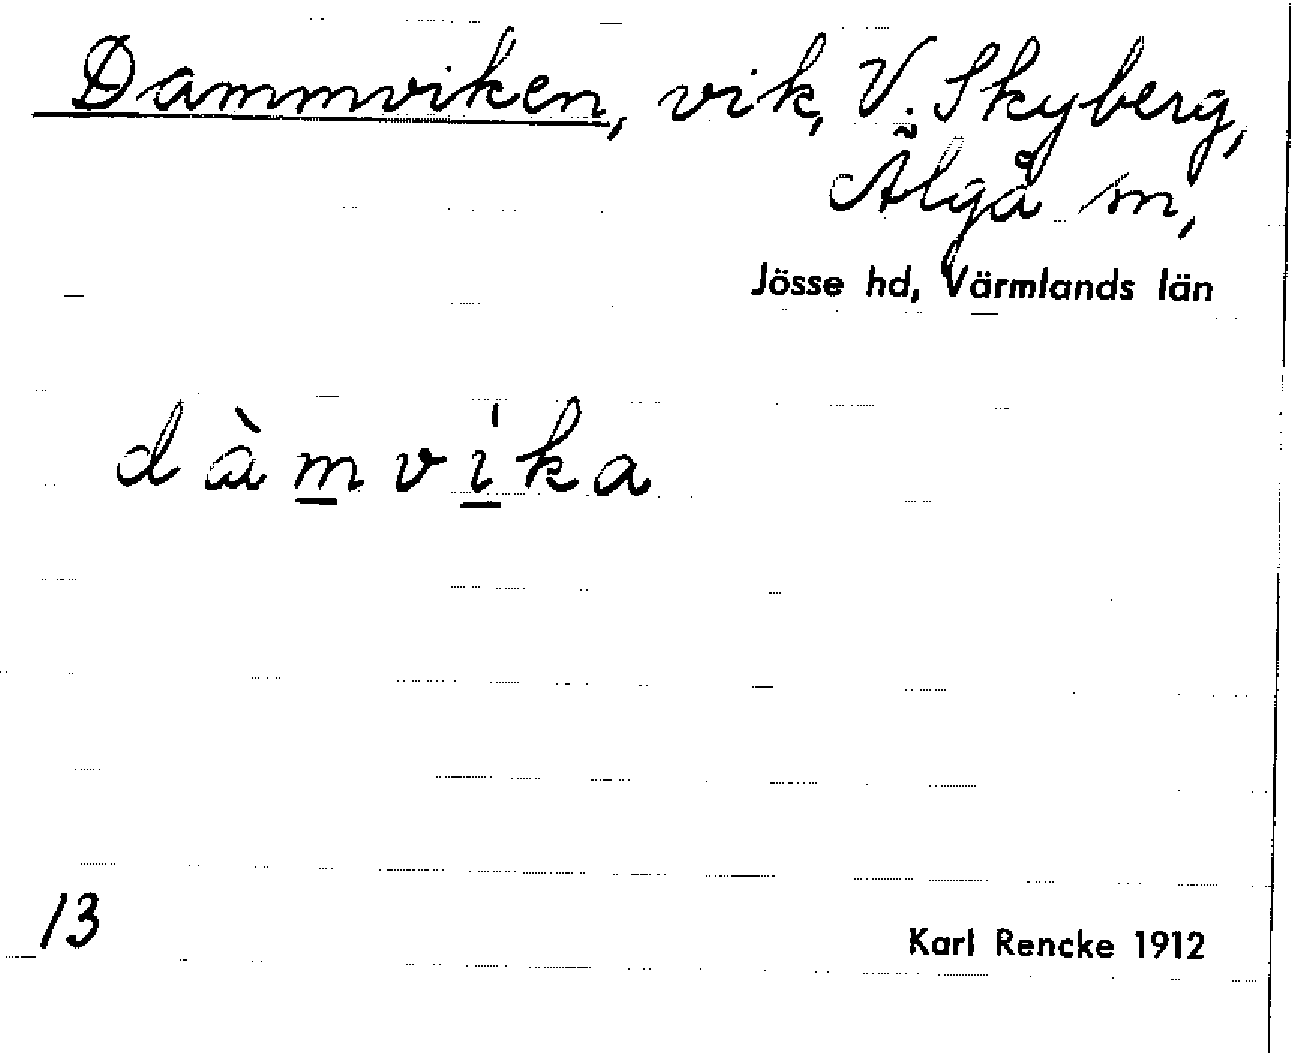 Dammviken, vik, V. Skyberg,
Älgå sn,
Jösse hd, Värmlands län
dàmvika
13
Karl Rencke 1912